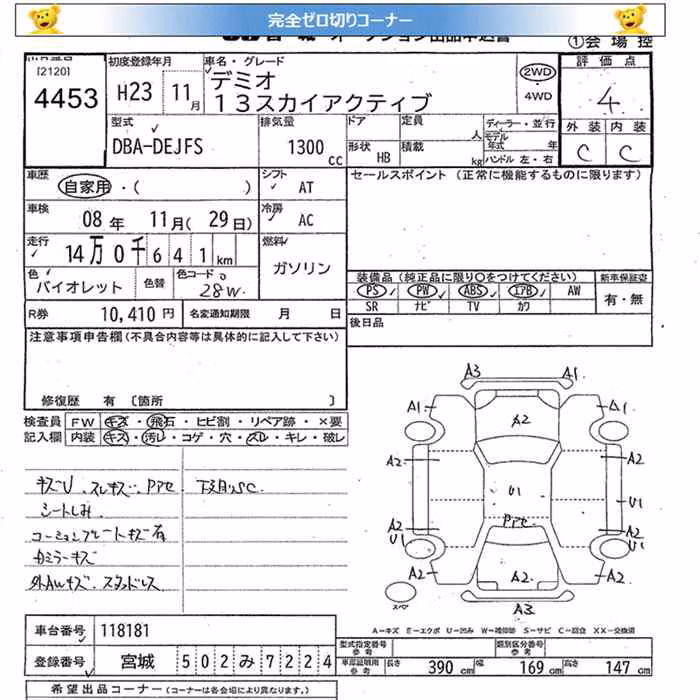 完全ゼロ切りコーナー
①会場控
[2120]
4453
初度登録年月
H23 11月
車名・グレード
デミオ
13スカイアクティブ
2WD
・
4WD
評価点
4
外装 内装
C C
型式
DBA-DEJFS
排気量
1300 cc
ドア
定員
人
形状
HB
積載
kg
ディーラー・並行
モデル
年式 年
ハンドル 左・右
車歴
自家用・( )
シフト
AT
セールスポイント (正常に機能するものに限ります)
車検
08年 11月(29日)
冷房
AC
走行
14万0千641km
燃料
ガソリン
色
バイオレット
色替
色コード
28W
装備品(純正品に限り○をつけてください)
新車保証書
PS PW ABS エアB AW
SR ナビ TV カワ
有・無
R券 10,410円
名変通知期限 月 日
後日品
注意事項申告欄(不具合内容等は具体的に記入して下さい)
修復歴 有〔箇所 〕
検査員 FW キズ・飛石・ヒビ割・リペア跡・×要
記入欄 内装 キズ・汚レ・コゲ・穴・スレ・キレ・破レ
キズU.スレキズ.Pアセ 下廻りSC.
シートしみ
コーションプレートキズ有
カミラーキズ
外AWキズ.スタッドレス
A3 A1
A1 A2 A1
A2 A2
U1 U1
Pアセ
A2 A2
U1 U1
A2 A2 A2
A3
スペア
A−キズ E−エクボ U−凹み W−補修跡 S−サビ C−腐食 XX−交換済
車台番号 118181
型式指定番号
参考
類別区分番号
参考
登録番号 宮城 502み7224
車庫証明用
参考
長さ 390cm 幅 169cm 高さ 147cm
希望出品コーナー(コーナーは各会場により異なります。)